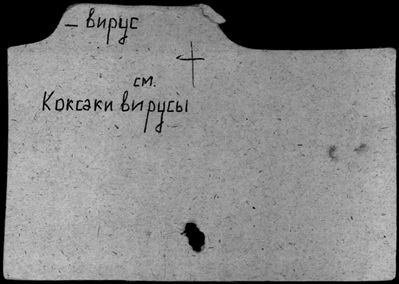 – вирус
см.
Коксаки вирусы